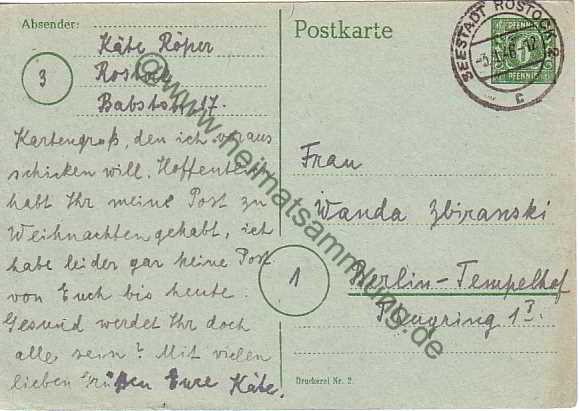 Absender:
Käte Röper
Rostock
3
Babststr. 17.
Kartengruß, den ich voraus
schicken will. Hoffentlich
habt Ihr meine Post zu
Weihnachten gehabt, ich
habe leider gar keine Post
von Euch bis heute.
Gesund werdet Ihr doch
alle sein? Mit vielen
lieben Grüßen Eure Käte.
Postkarte
SEESTADT ROSTOCK 2
c
PFENNIG
Frau
Wanda Zbiranski
1
Berlin-Tempelhof
Druckerei Nr. 2.
@www.heimatsammlung.de